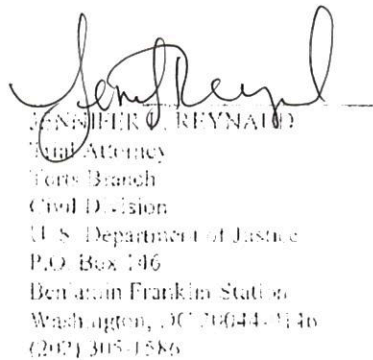 JENNIFER REYNAUD
Trial Attorney
Torts Branch
Civil Division
U.S. Department of Justice
P.O. Box 146
Benjamin Franklin Station
Washington, DC 20044-0146
(202) 305-1586